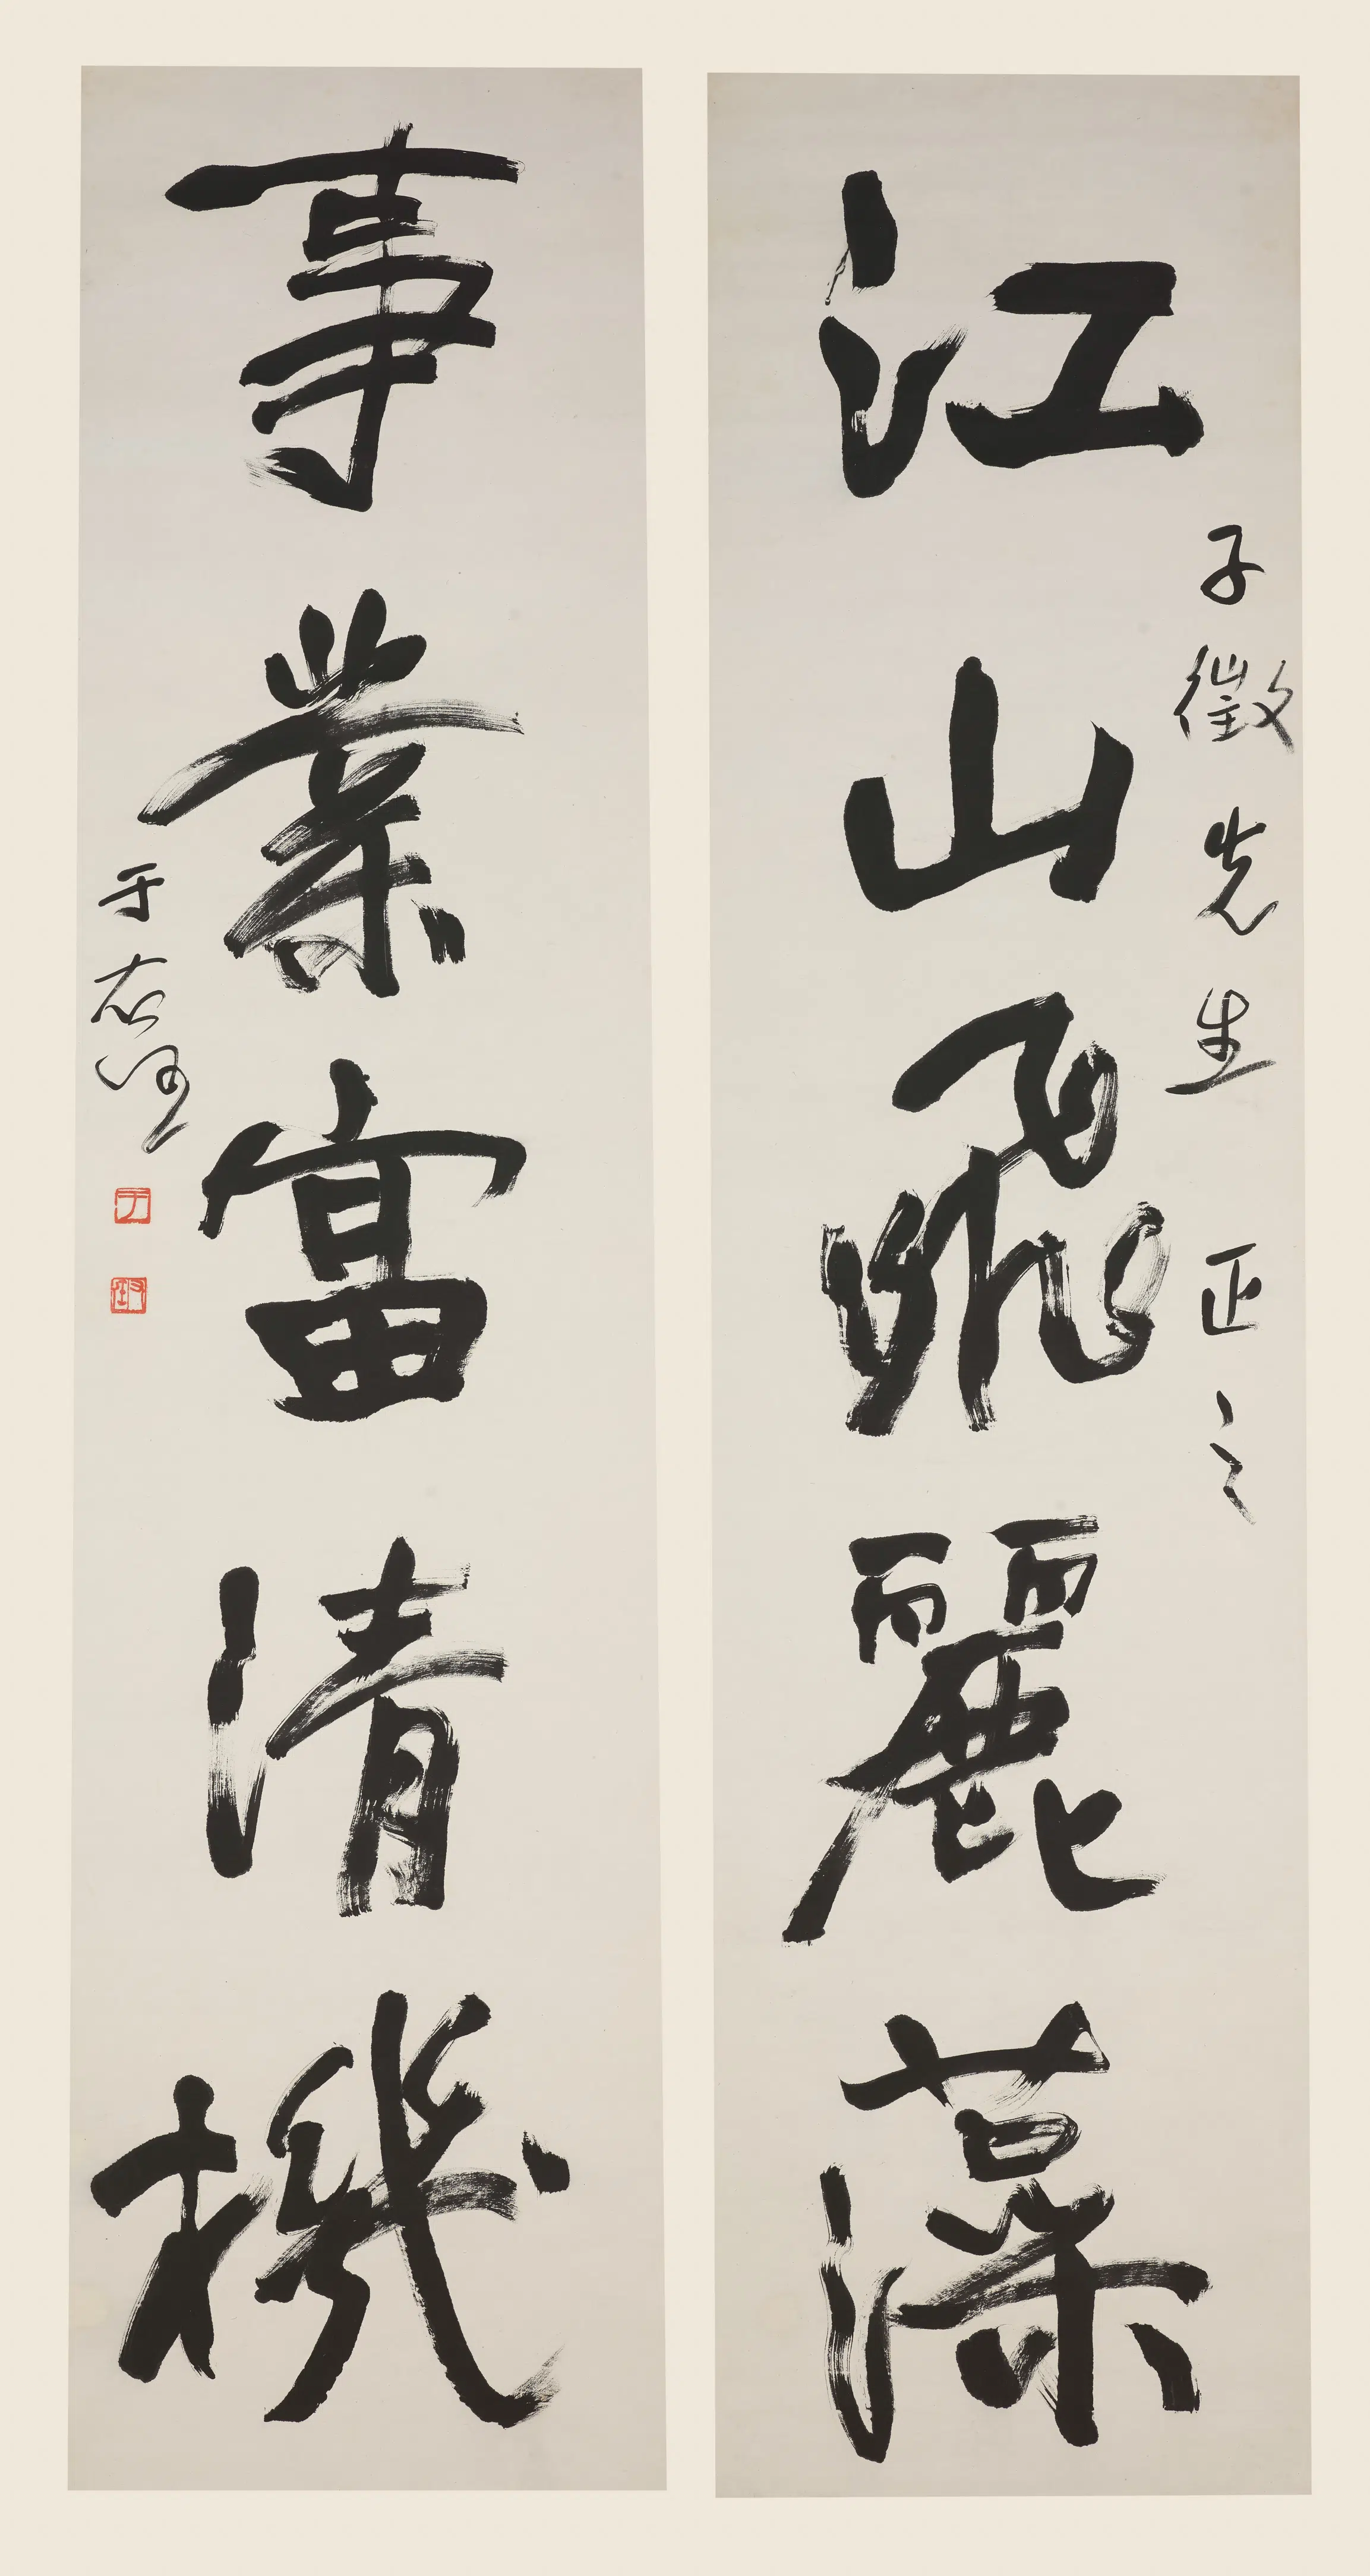 江山飛麗藻
子徵先生正之
事業富清機
于右任